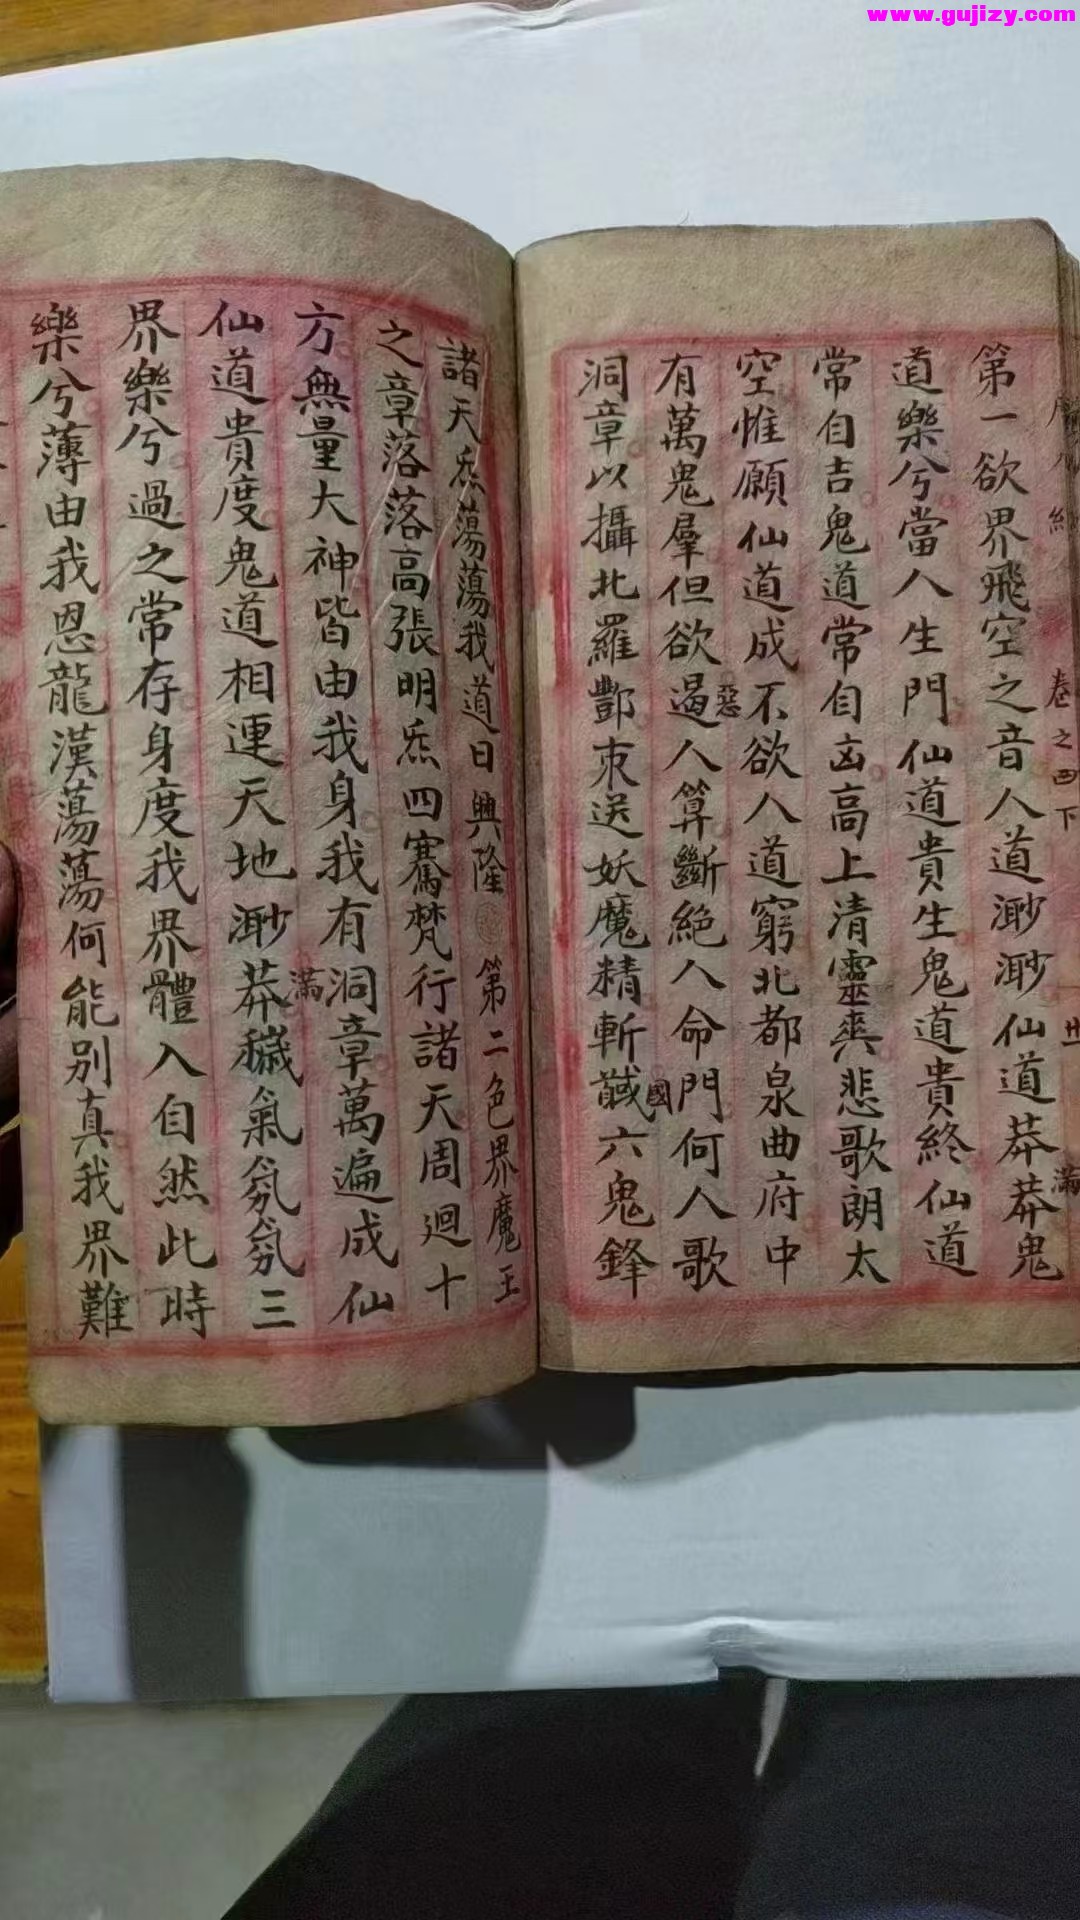 www.gujizy.com
卷之四下
廿一
滿
第一欲界飛空之音人道渺渺仙道莽莽鬼
道樂兮當人生門仙道貴生鬼道貴終仙道
常自吉鬼道常自凶高上清靈爽悲歌朗太
空惟願仙道成不欲人道窮北都泉曲府中
惡
有萬鬼羣但欲遏人算斷絕人命門何人歌
國
洞章以攝北羅酆束送妖魔精斬馘六鬼鋒
諸天炁蕩蕩我道日興隆 第二色界魔王
之章落落高張明炁四騫梵行諸天周迴十
方無量大神皆由我身我有洞章萬遍成仙
滿
仙道貴度鬼道相連天地渺莽穢氣氛氛三
界樂兮過之常存身度我界體入自然此時
樂兮薄由我恩龍漢蕩蕩何能別真我界難